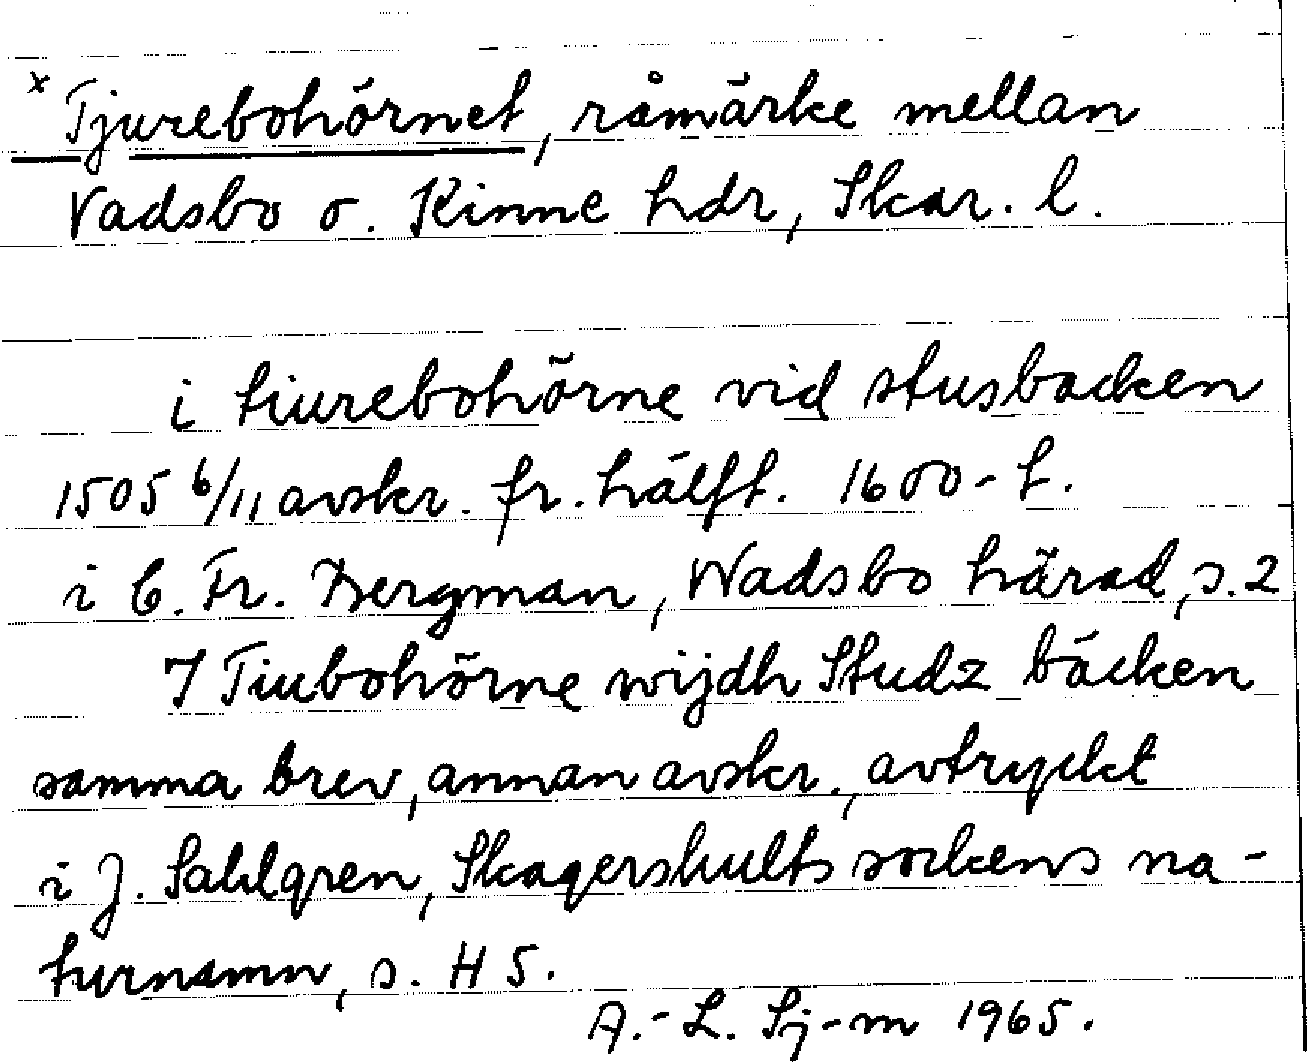 x Tjurebohörnet, råmärke mellan
Vadsbo o. Kinne hdr, Skar. l.
i tiurebohörne vid stusbacken
1505 6/11 avskr. fr. hälft. 1600-t.
i C. Fr. Bergman, Wadsbo härad, s. 2
I Tiubohörne wijdh Studz bäcken
samma brev, annan avskr., avtryckt
i J. Sahlgren, Skagershults sockens na-
turnamn, s. H 5.
A.-L. Sj-m 1965.